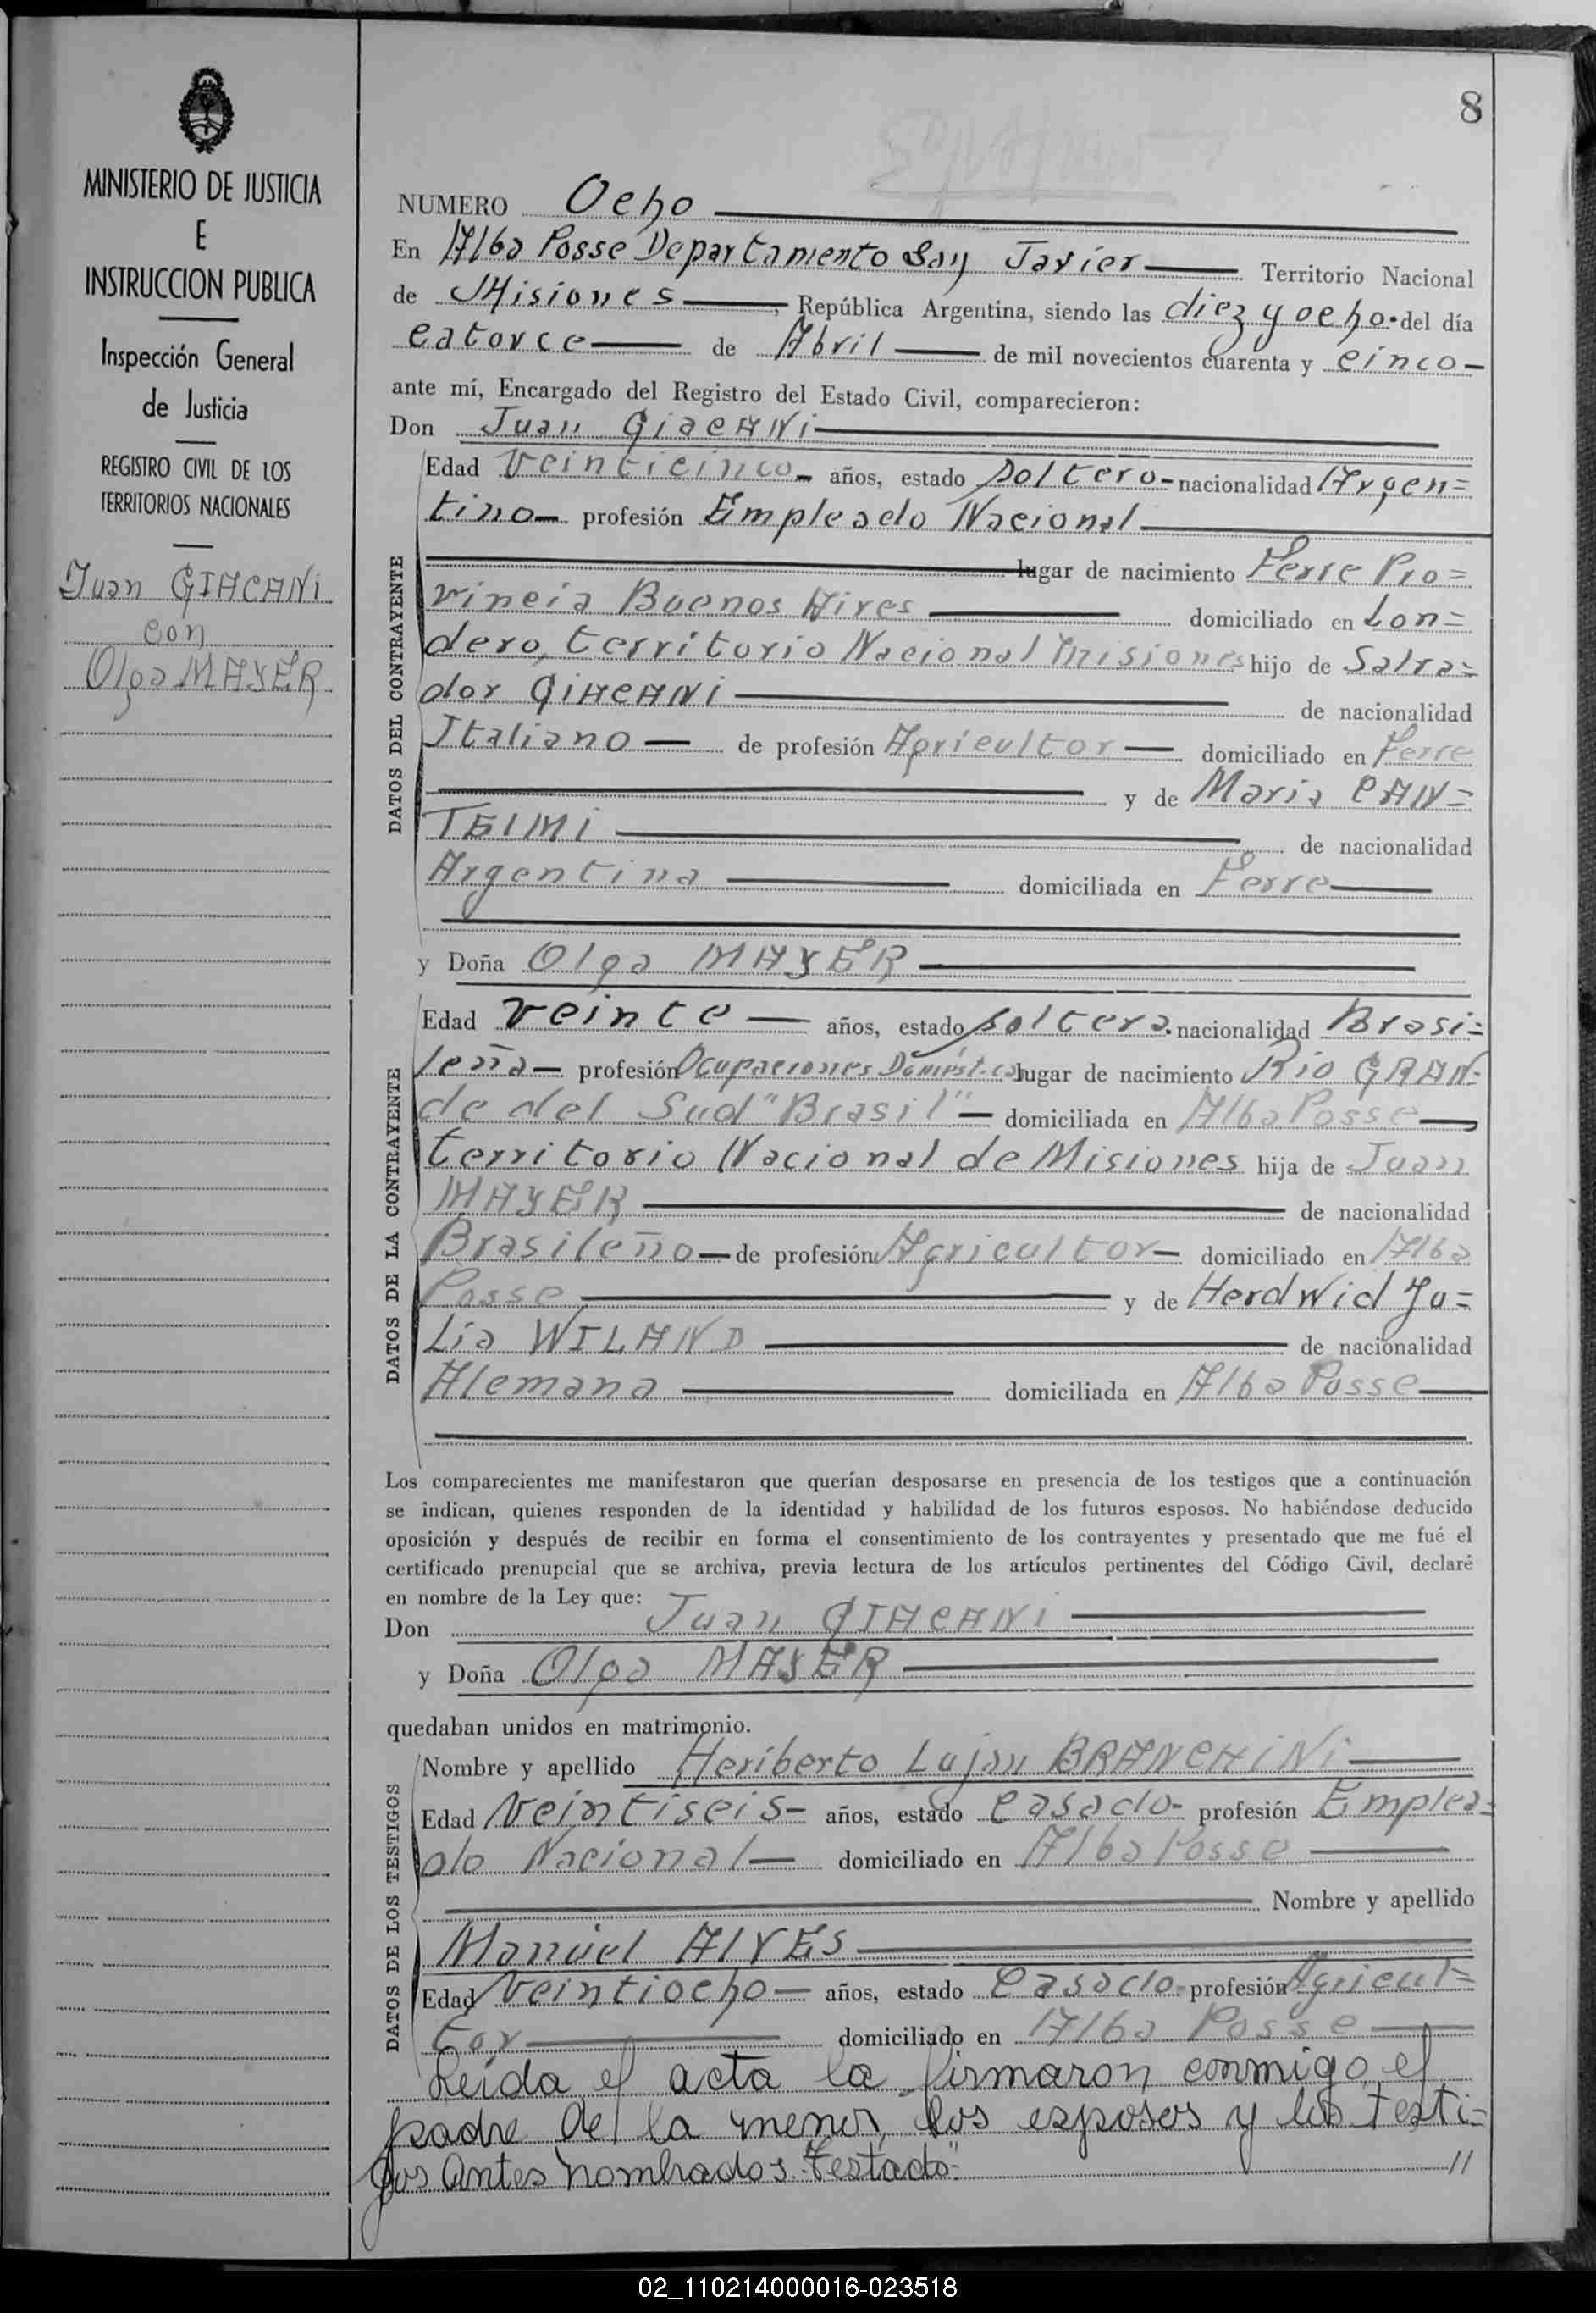 8
MINISTERIO DE JUSTICIA
E
INSTRUCCION PUBLICA
Inspección General
de Justicia
REGISTRO CIVIL DE LOS
TERRITORIOS NACIONALES
Juan GIACANi
con
Olga MAYER
NUMERO Ocho
En Alba Posse Departamento San Javier Territorio Nacional
de Misiones, República Argentina, siendo las diez y ocho del día
catorce de Abril de mil novecientos cuarenta y cinco
ante mí, Encargado del Registro del Estado Civil, comparecieron:
Don Juan GiacANi
DATOS DEL CONTRAYENTE
Edad veinticinco años, estado soltero nacionalidad Argen=
tino profesión Empleado Nacional
lugar de nacimiento Ferre Pro=
vincia Buenos Aires domiciliado en Lon=
dero, territorio Nacional Misiones hijo de Salva=
dor GiACANi de nacionalidad
Italiano de profesión Agricultor domiciliado en Ferre
y de Maria CAN=
TELMI de nacionalidad
Argentina domiciliada en Ferre
y Doña Olga MAYER
DATOS DE LA CONTRAYENTE
Edad veinte años, estado soltera nacionalidad Brasi=
leña profesión Ocupaciones Domésticas lugar de nacimiento Rio GRAN=
de del Sud "Brasil" domiciliada en Alba Posse
territorio Nacional de Misiones hija de Juan
MAYER de nacionalidad
Brasileño de profesión Agricultor domiciliado en Alba
Posse y de Herdwid Ju=
lia WILAND de nacionalidad
Alemana domiciliada en Alba Posse
Los comparecientes me manifestaron que querían desposarse en presencia de los testigos que a continuación
se indican, quienes responden de la identidad y habilidad de los futuros esposos. No habiéndose deducido
oposición y después de recibir en forma el consentimiento de los contrayentes y presentado que me fué el
certificado prenupcial que se archiva, previa lectura de los artículos pertinentes del Código Civil, declaré
en nombre de la Ley que:
Don Juan GIACANi
y Doña Olga MAYER
quedaban unidos en matrimonio.
DATOS DE LOS TESTIGOS
Nombre y apellido Heriberto Lujan BRANCHiNi
Edad Veintiseis años, estado Casado profesión Emplea=
do Nacional domiciliado en Alba Posse
Nombre y apellido
Manuel AlVES
Edad Veintiocho años, estado Casado profesión Agricul=
tor domiciliado en Alba Posse
Leida el acta la firmaron conmigo, el
padre de la menor, los esposos y los testi=
gos antes nombrados. Testado: //
02_110214000016-023518